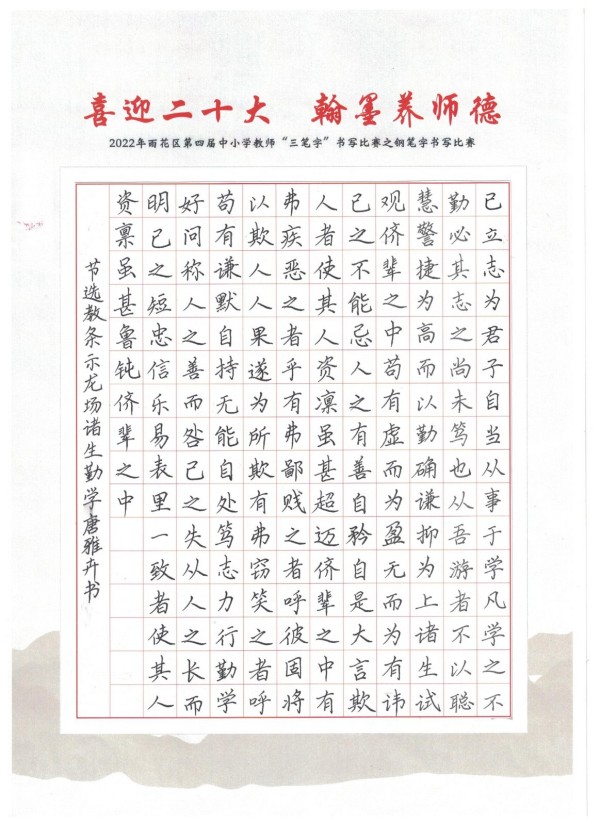 喜迎二十大 翰墨养师德
2022年雨花区第四届中小学教师“三笔字”书写比赛之钢笔字书写比赛
已立志为君子自当从事于学凡学之不
勤必其志之尚未笃也从吾游者不以聪
慧警捷为高而以勤确谦抑为上诸生试
观侪辈之中苟有虚而为盈无而为有讳
己之不能忌人之有善自矜自是大言欺
人者使其人资凛虽甚超迈侪辈之中有
弗疾恶之者乎有弗鄙贱之者呼彼固将
以欺人人果遂为所欺有弗窃笑之者呼
苟有谦默自持无能自处笃志力行勤学
好问称人之善而咎己之失从人之长而
明己之短忠信乐易表里一致者使其人
资禀虽甚鲁钝侪辈之中
节选教条示龙场诸生勤学唐雅卉书